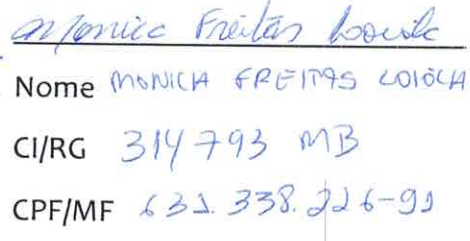 Monica Freitas Loiola
Nome MONICA FREITAS LOIOLA
CI/RG 314793 MB
CPF/MF 631.338.226-91